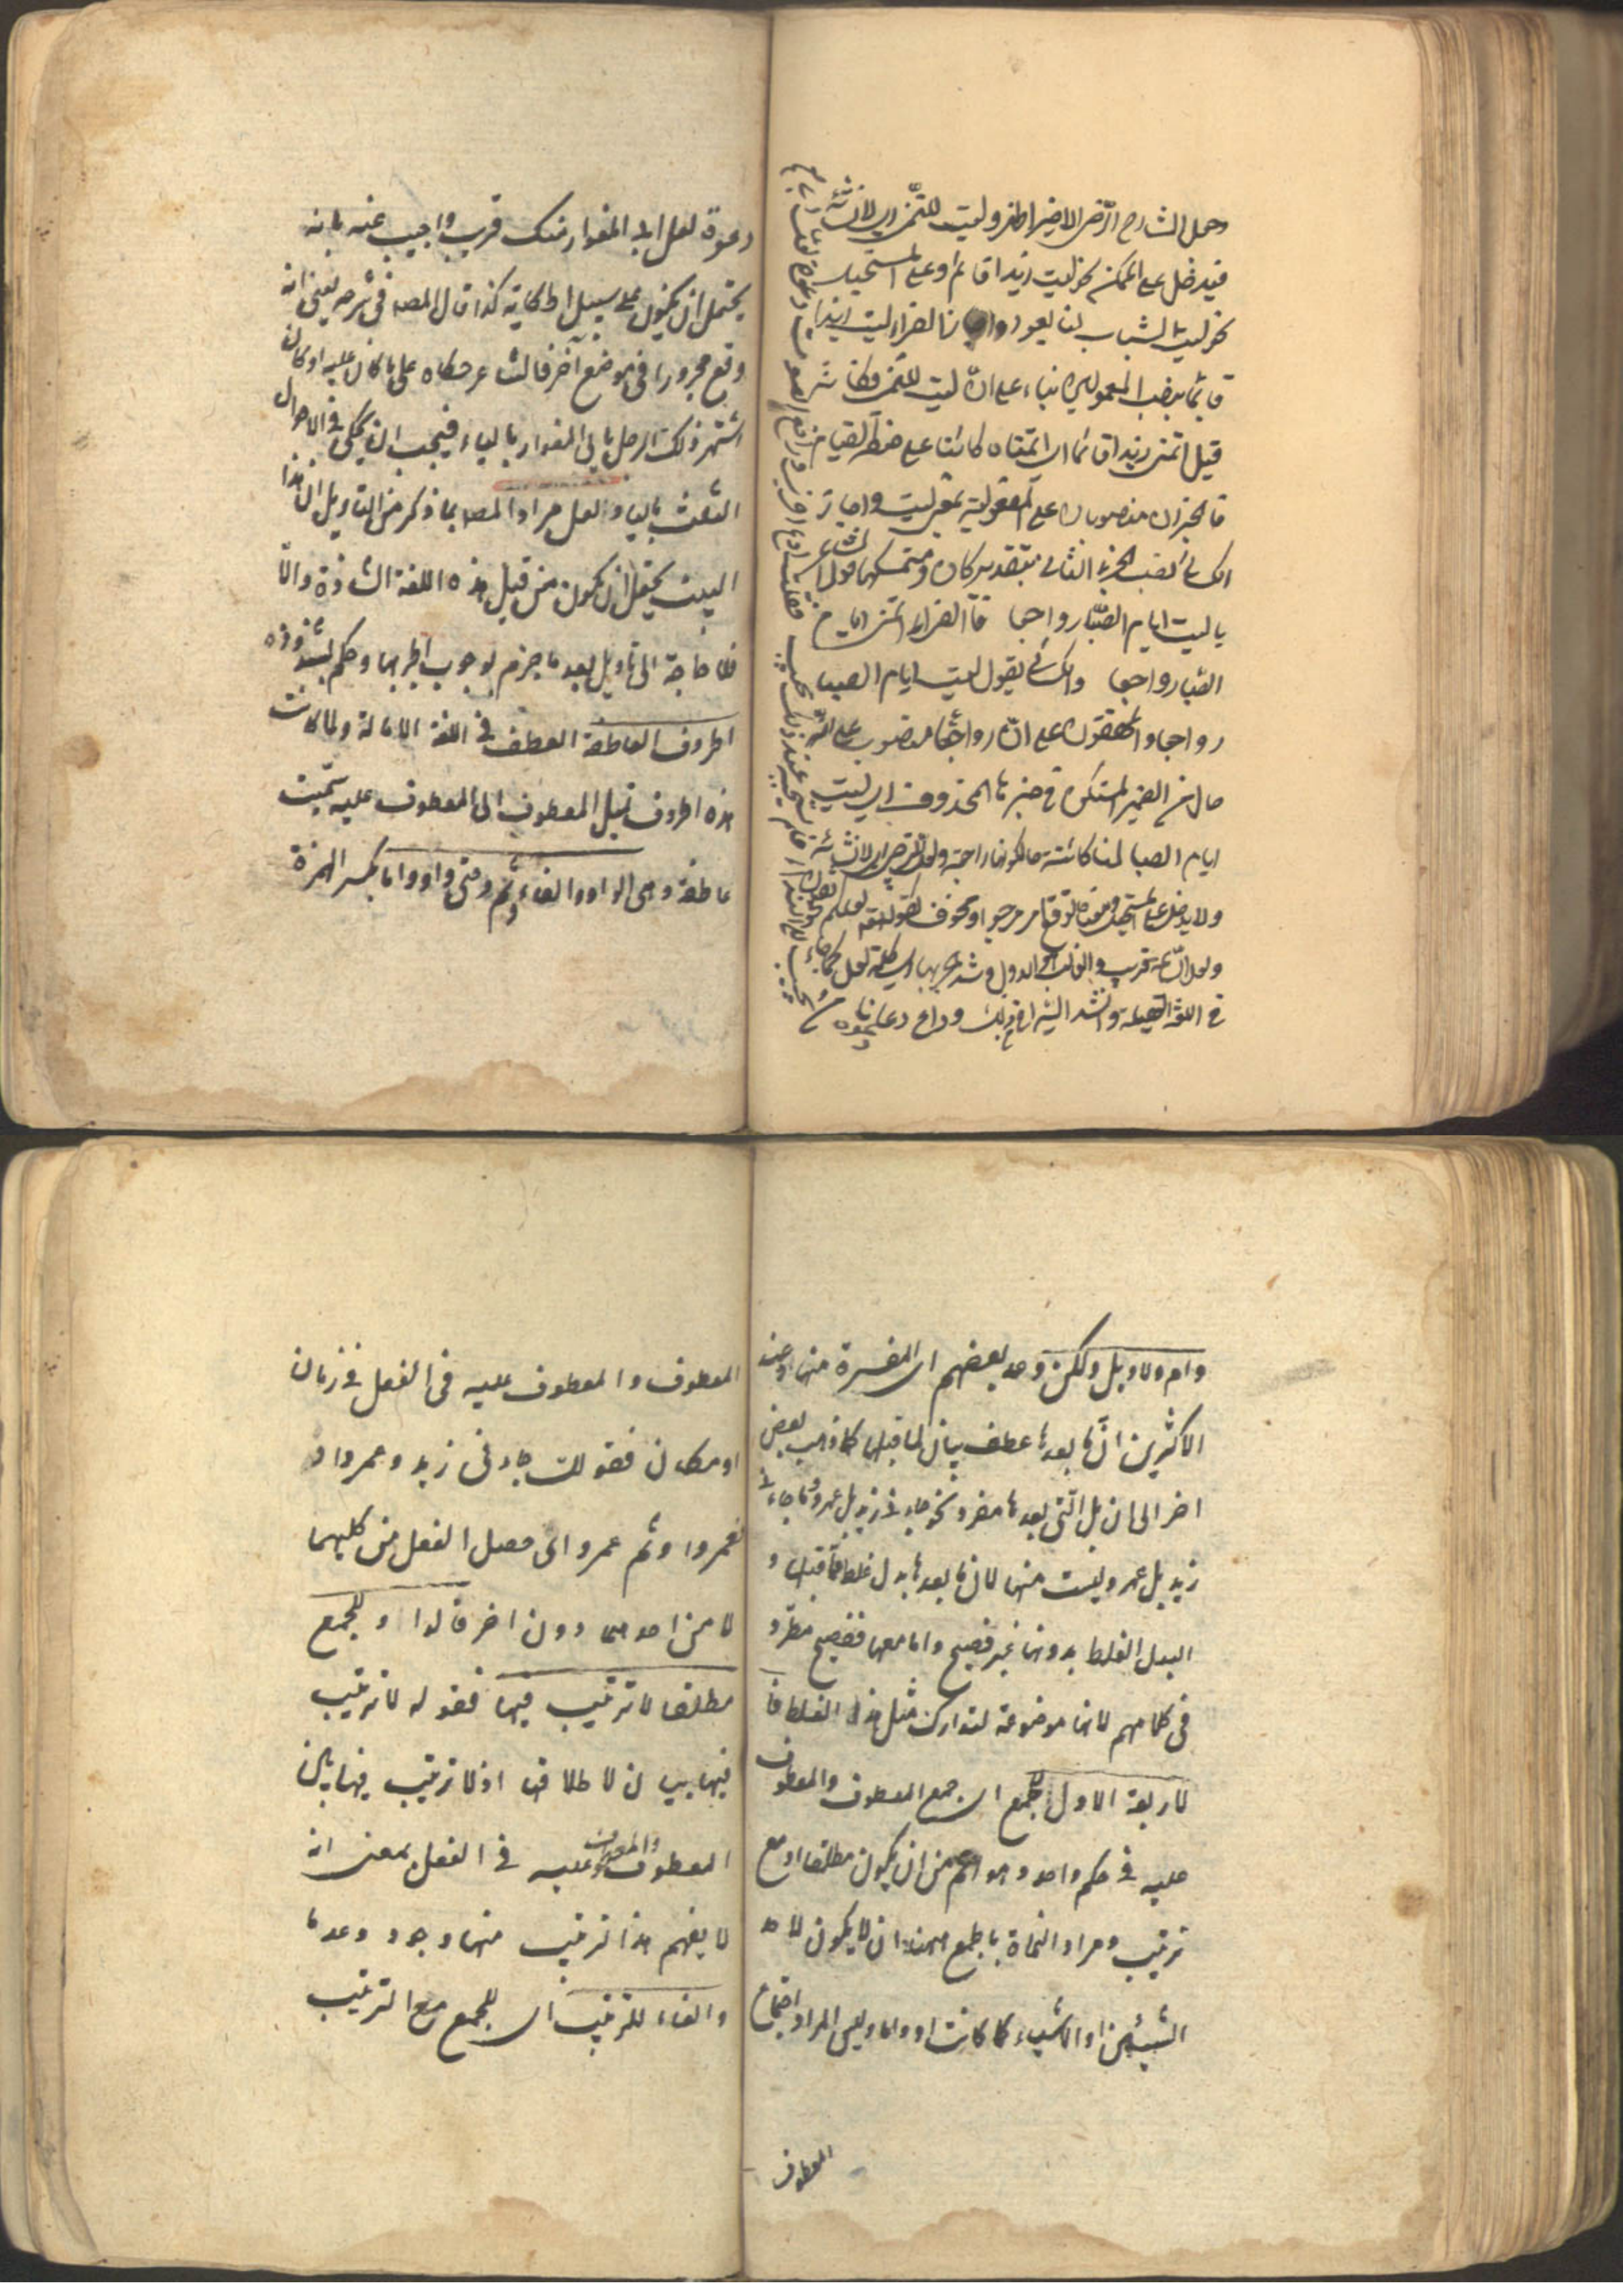 وحمل الشارح الرضى الاخير اظهر وليت للتمنى اى لانشائه
فيدخل على الممكن نحو ليت زيدا قائم وعلى المستحيل
نحو ليت الشباب لنا يعود واجاز الفراء ليت زيدا
قائما بنصب المعمولين بناء على ان ليت للتمنى فكانه
قيل اتمنى زيدا قائما اى اتمناه كائنا على صفة القيام
فالجزءان منصوبان على المفعولية بمعنى ليت واجاز
الكسائى نصب الجزء الثانى بتقدير كان ومتمسكهما قول الشاعر
يا ليت ايام الصبا رواجعا فالفراء اتمنى ايام
الصبا رواجعا والكسائى يقول ليت ايام الصبا
رواجعا والمحققون على ان رواجعا منصوب على انه
حال من الضمير المستكن فى خبرها المحذوف اى ليت
ايام الصبا لنا كائنة حال كونها راجعة ولعل للترجى اى لانشائه
ولا يدخل على المستحيل ومعناه توقع امر مرجو او مخوف كقوله تعالى لعلكم تفلحون
ولعل الساعة قريب والغالب هو الاول وشذ الجر بها اى بكلمة لعل كما جاء
فى اللغة العقيلية وانشد السيرافى فى ذلك وداع دعا يا
من يجيب الى الندا فلم يستجبه عند ذلك مجيب فقلت ادع اخرى وارفع الصوت دعوة لعل
دعوة
دعوة لعل ابى المغوار منك قريب واجيب عنه بانه
يحتمل ان يكون على سبيل الحكاية كذا قال المصـ فى شرحه يعنى انه
وقع مجرورا فى موضع آخر فالشاعر حكاه على ما كان عليه او كان
اشتهر ذلك الرجل بابى المغوار بالياء فيجب ان يحكى فى الاحوال
الثلث بالياء ولعل مراد المصـ بما ذكر من التاويل ان هذا
البيت يحتمل ان يكون من قبيل هذه اللغة الشاذة والا
فلا حاجة الى تاويل بعد ما جزم بوجوب الجر بها وحكم بشذوذه
الحروف العاطفة العطف فى اللغة الامالة ولما كانت
هذه الحروف تميل المعطوف الى المعطوف عليه سميت
عاطفة وهى الواو والفاء وثم وحتى واو واما بكسر الهمزة
وام ولا وبل ولكن وعد بعضهم اى المفسرة منها وعند
الاكثرين ان ما بعدها عطف بيان لما قبلها كما ذهب بعض
اخر الى ان بل التى بعدها مفرد نحو جاءنى زيد بل عمرو وما جاءنى
زيد بل عمرو ليست منها لان ما بعدها بدل غلط مما قبلها و
البدل الغلط بدونها غير فصيح واما معها ففصيح مطرد
فى كلامهم لانها موضوعة لتدارك مثل هذا الغلط فا
لاربعة الاول للجمع اى جمع المعطوف والمعطوف
عليه فى حكم واحد وهو اعم من ان يكون مطلقا او مع
ترتيب ومراد النحاة بالجمع ههنا ان لا يكون لاحد
الشيئين او الاشياء كما كانت او واما وليس المراد اجتماع
المعطوف
المعطوف والمعطوف عليه فى الفعل فى زمان
او مكان فقولك جاءنى زيد وعمرو او
فعمرو او ثم عمرو اى حصل الفعل من كليهما
لا من احدهما دون اخر فالواو للجمع
مطلقا لا ترتيب فيها فقوله لا ترتيب
فيها بيان لاطلاقها اذ لا ترتيب فيها بين
المعطوف والمعطوف عليه فى الفعل بمعنى انه
لا يفهم هذا ترتيب منها وجود وعدما
والفاء للترتيب اى للجمع مع الترتيب